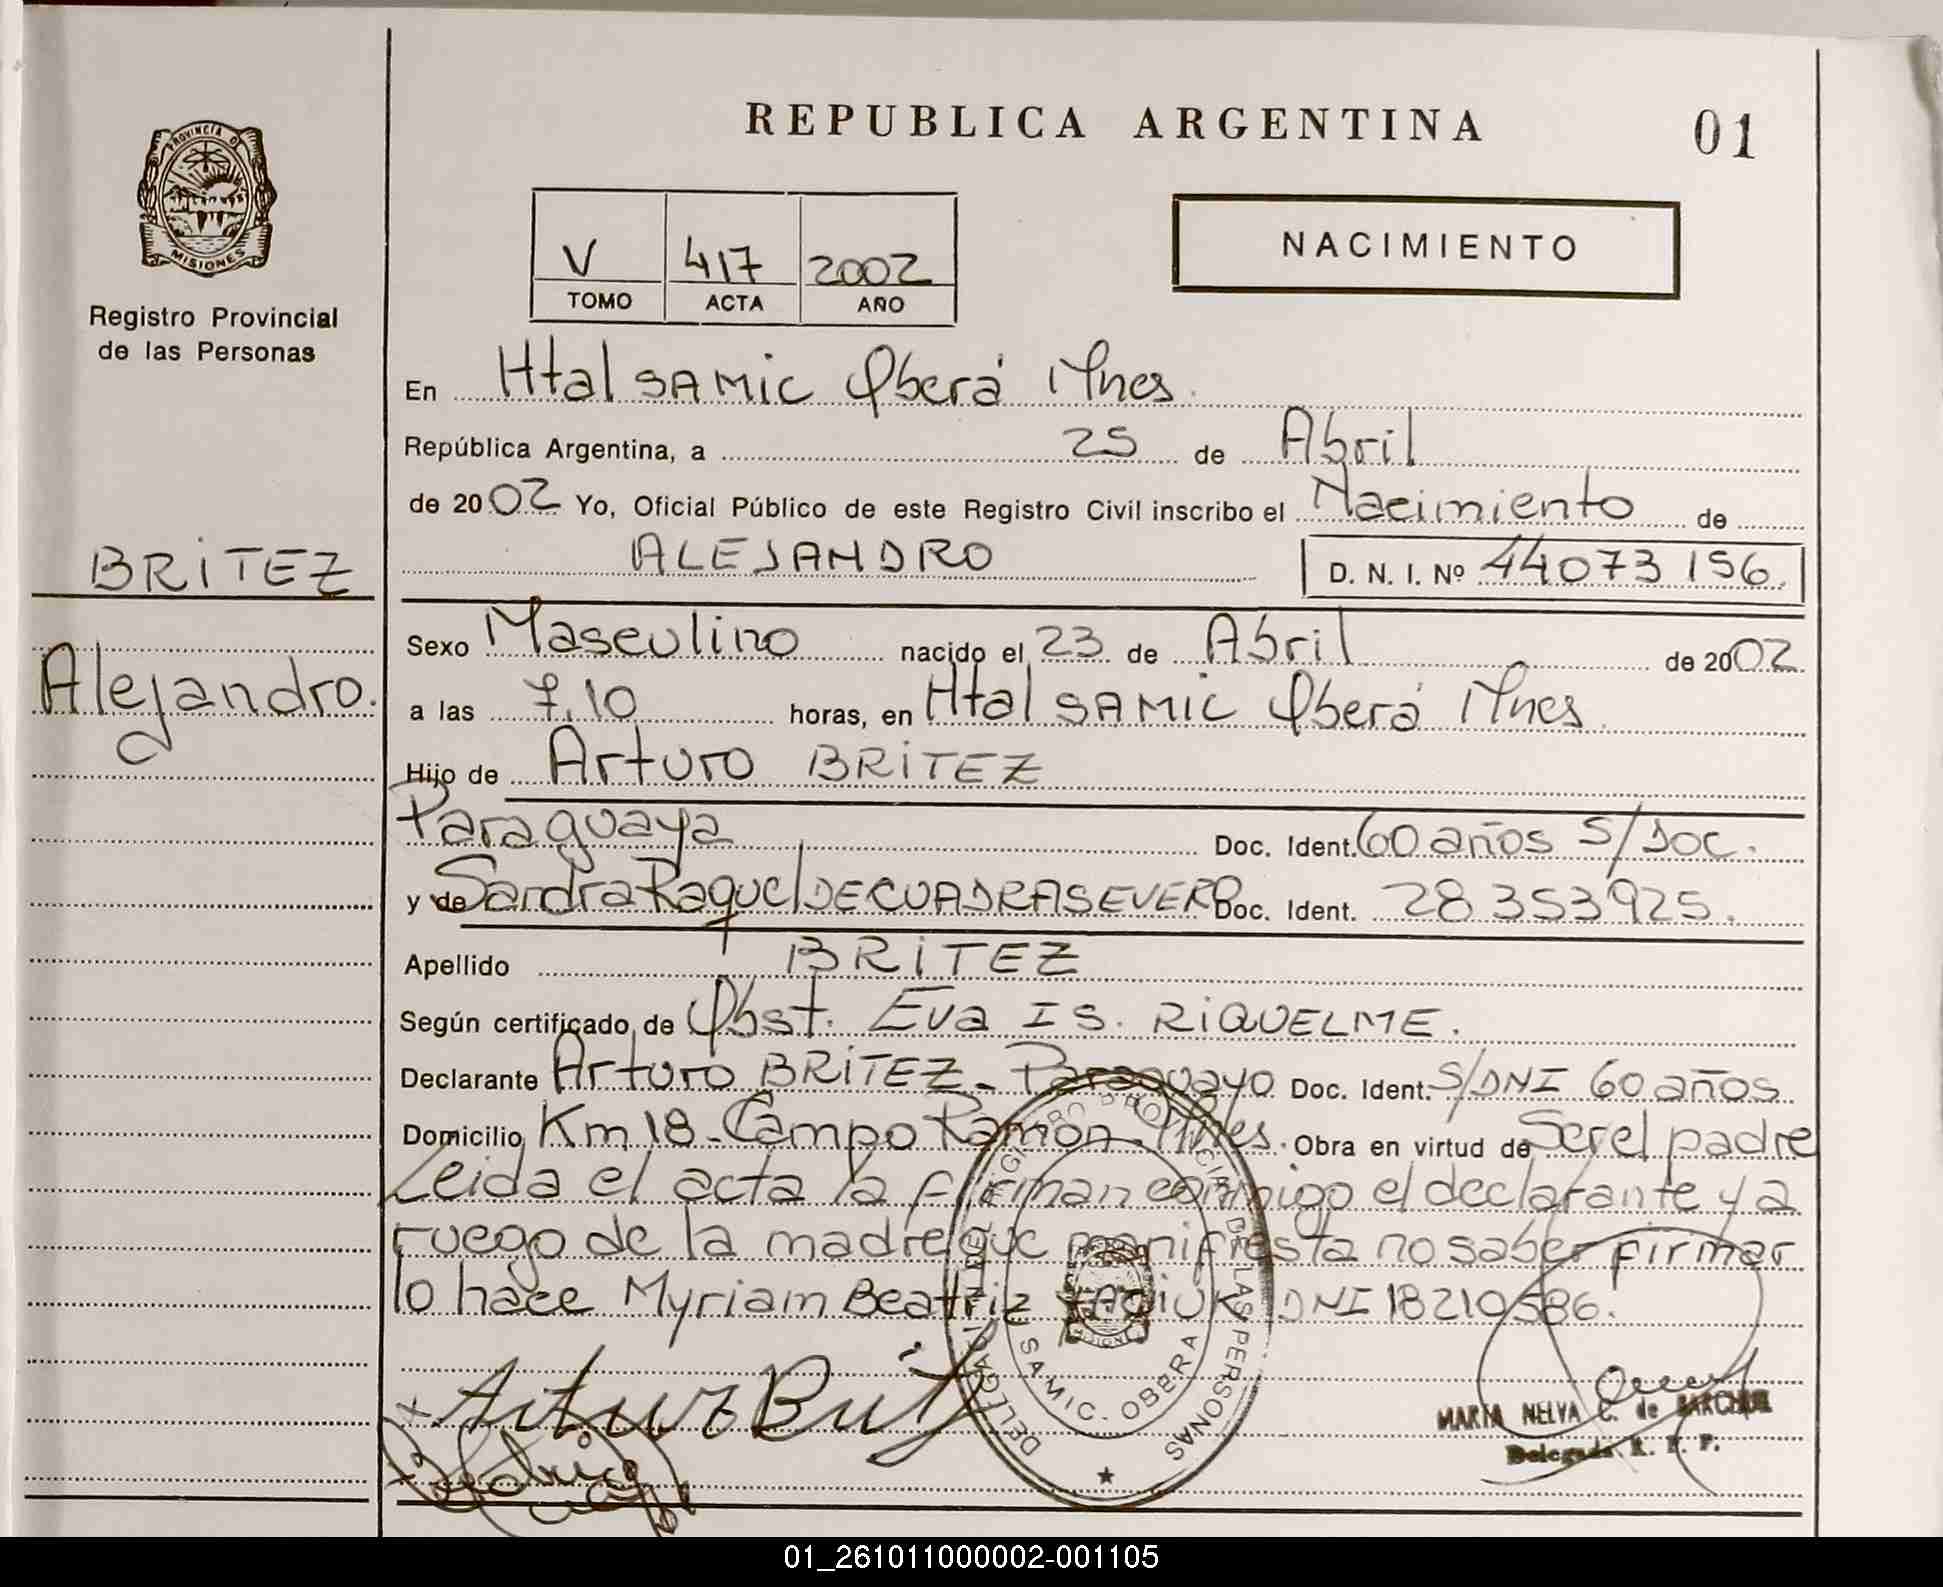 REPUBLICA ARGENTINA
01
PROVINCIA DE
MISIONES
Registro Provincial
de las Personas
V 417 2002
TOMO ACTA AÑO
NACIMIENTO
En Htal SAMIC Oberá Mnes.
República Argentina, a 25 de Abril
de 2002 Yo, Oficial Público de este Registro Civil inscribo el Nacimiento de
ALEJANDRO D. N. I. Nº 44073156.
BRITEZ
Alejandro.
Sexo Masculino nacido el 23 de Abril de 2002
a las 7.10 horas, en Htal SAMIC Oberá Mnes.
Hijo de Arturo BRITEZ
Paraguaya Doc. Ident. 60 años S/Doc.
y de Sandra Raquel DECUADRASEVERO Doc. Ident. 28353925.
Apellido BRITEZ
Según certificado de Obst. Eva IS. RIQUELME.
Declarante Arturo BRITEZ - Paraguayo Doc. Ident. S/DNI 60 años
Domicilio Km 18 - Campo Ramón - Mnes. Obra en virtud de Ser el padre
Leida el acta la firman conmigo el declarante y a
ruego de la madre que manifiesta no saber firmar
lo hace Myriam Beatriz DNI 18210586.
Arturo Brit
REGISTRO PROVINCIAL DE LAS PERSONAS
DELEGACION
SAMIC. OBERA
MARIA NELVA C. de
Delegada R. P. P.
01_261011000002-001105